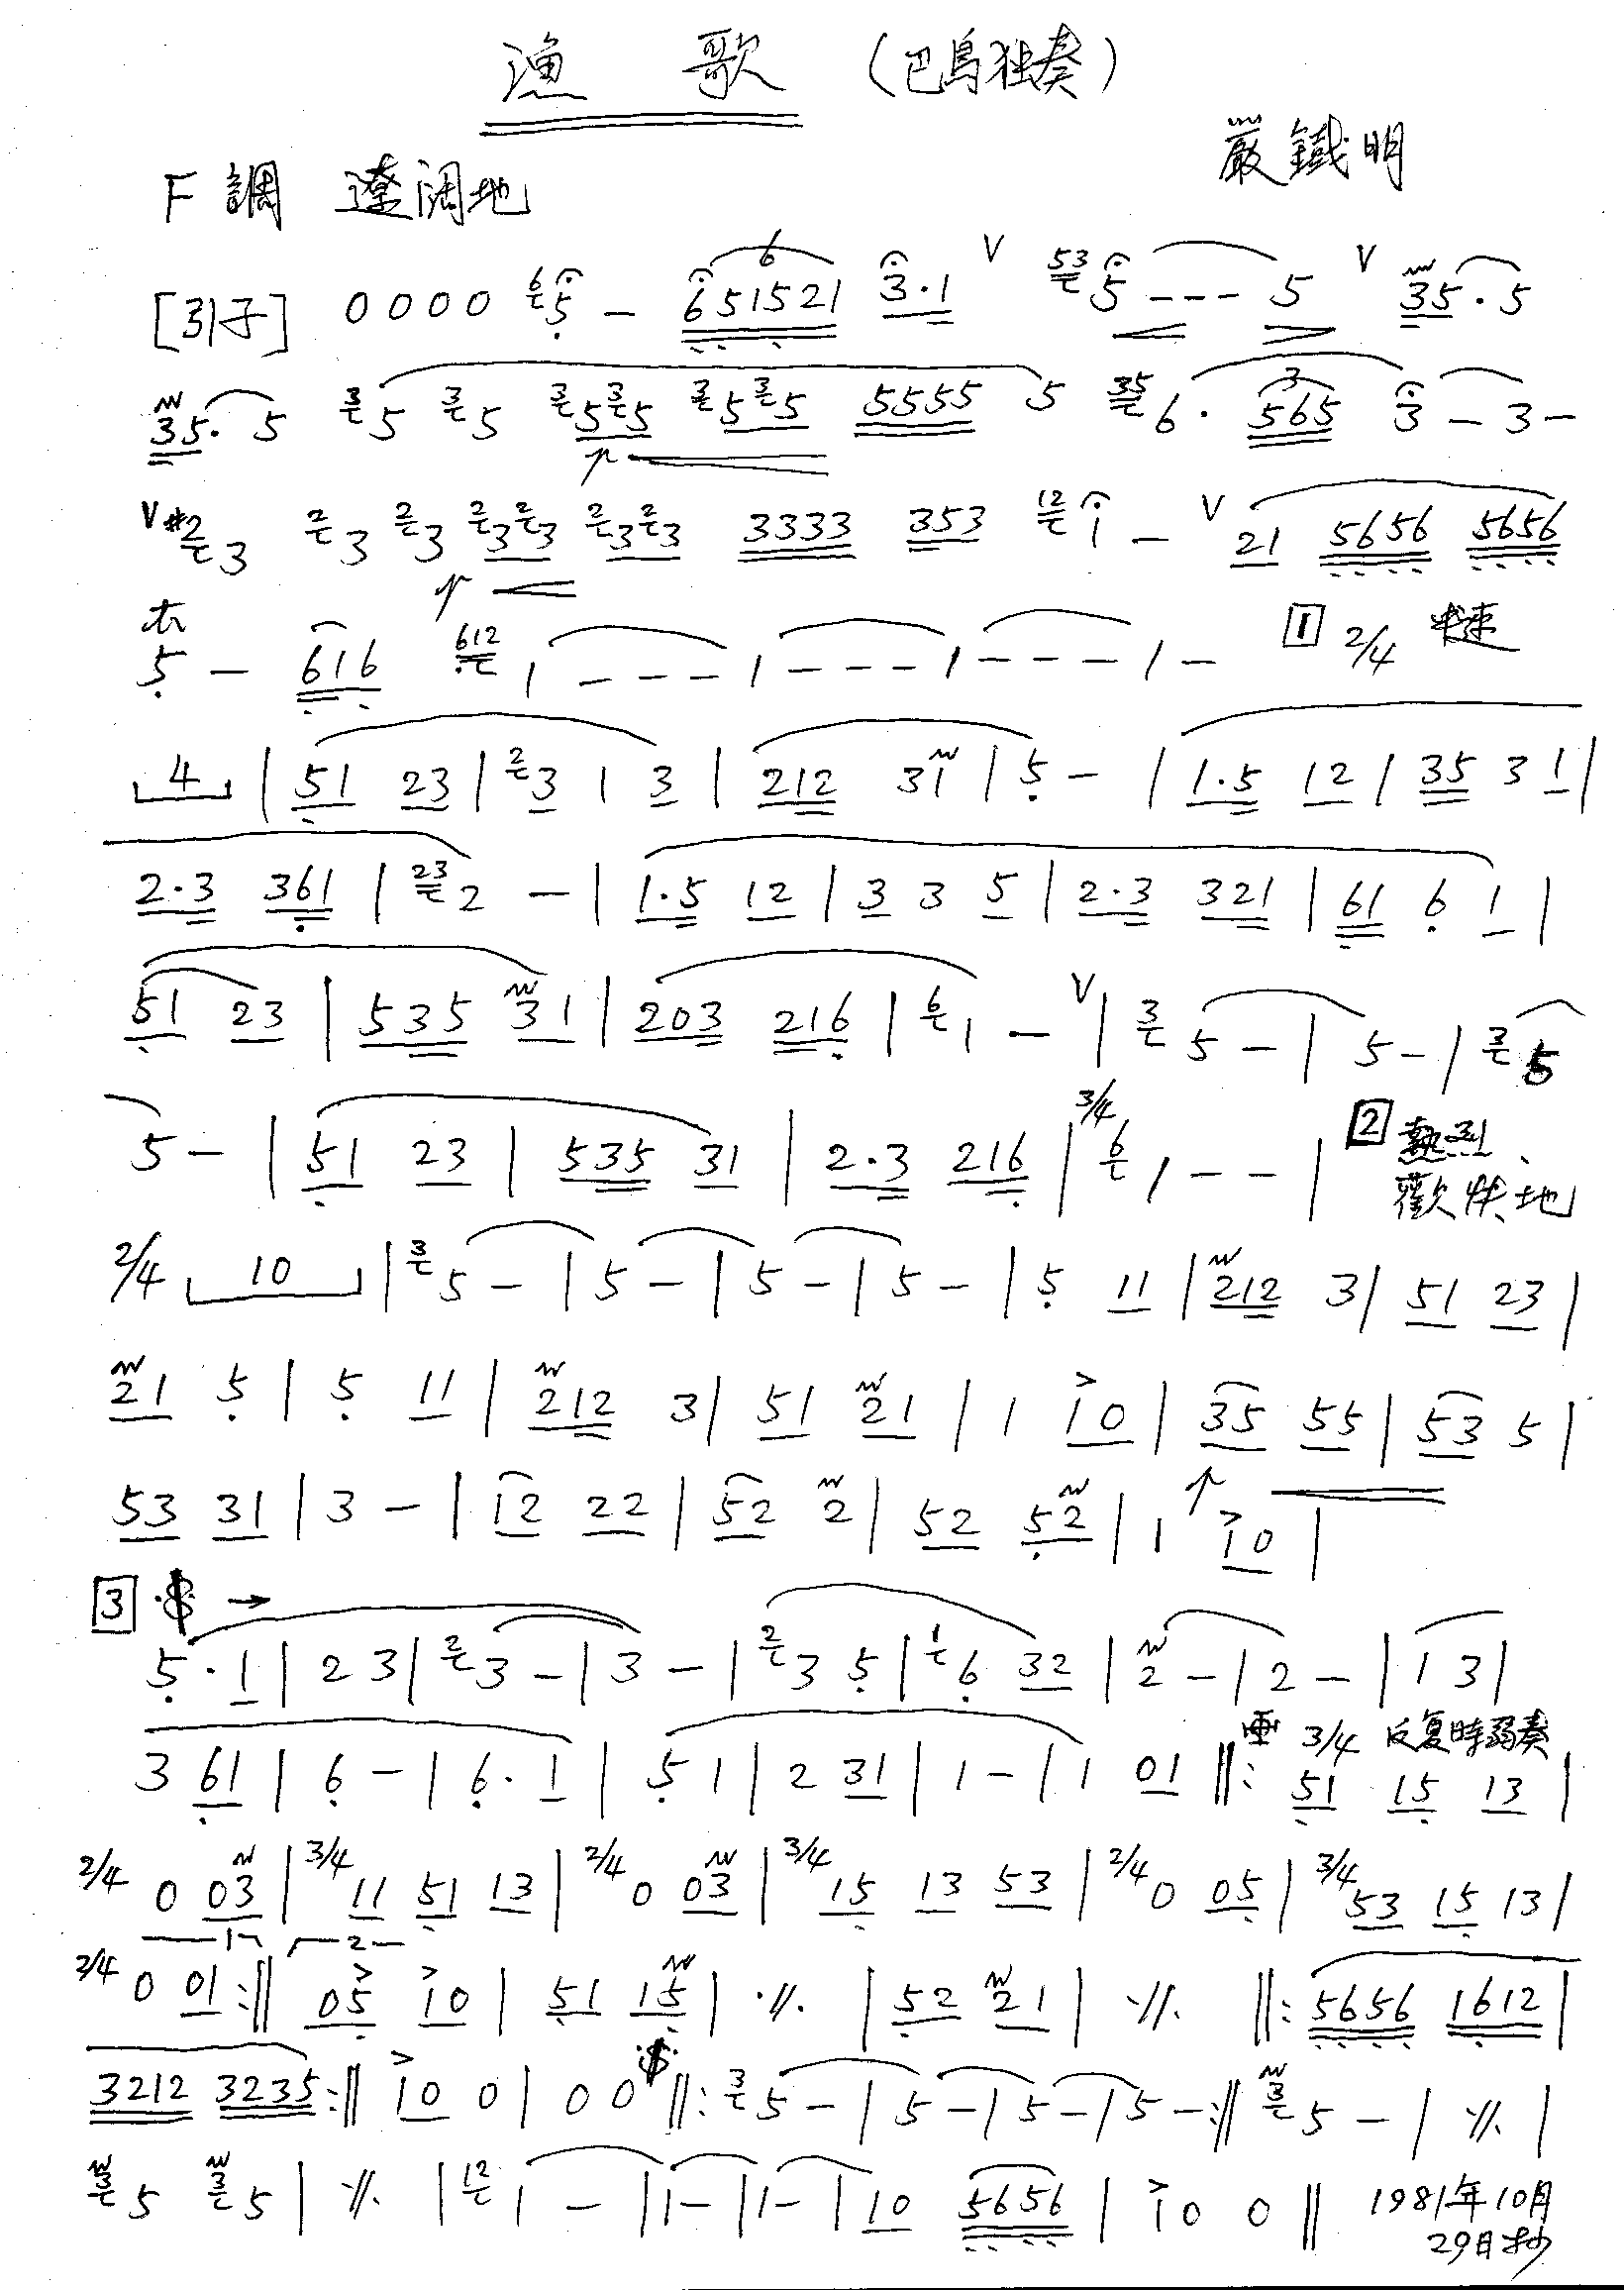 渔 歌 (巴烏独奏)
嚴鐵明
F調 遼阔地
[引子] 0 0 0 0 6 5 — 6 651521 3·1 V 53 5 - - - 5 V 35·5
35·5 3 5 3 5 3 5 3 5 3 5 3 5 5555 5 35 6· 3 565 3 — 3 —
V #2 3 2 3 2 3 2 3 2 3 2 3 2 3 3333 353 12 1 — V 21 5656 5656
5 — 616 612 1 - - - 1 - - - 1 - - - 1 - 1 2/4
4 | 51 23 | 2 3 1 3 | 212 31 | 5 — | 1·5 12 | 35 3 1 |
2·3 361 | 23 2 — | 1·5 12 | 3 3 5 | 2·3 321 | 61 6 1 |
51 23 | 535 31 | 203 216 | 6 1 — V | 3 5 — | 5 — | 3 5
5 — | 51 23 | 535 31 | 2·3 216 | 3/4 6 1 - - | 2 熱烈、
歡快地
2/4 10 | 3 5 — | 5 — | 5 — | 5 — | 5 11 | 212 3 | 51 23 |
21 5 | 5 11 | 212 3 | 51 21 | 1 > 10 | 35 55 | 53 5 |
53 31 | 3 — | 12 22 | 52 2 | 52 52 | 1 > 10 |
3 𝄋 →
5·1 | 2 3 | 2 3 — | 3 — | 2 3 5 | 1 6 32 | 2 — | 2 — | 1 3 |
3 61 | 6 — | 6·1 | 5 1 | 2 31 | 1 — | 1 01 ‖: 3/4 反复時弱奏 51 15 13 |
2/4 0 03 | 3/4 11 51 13 | 2/4 0 03 | 3/4 15 13 53 | 2/4 0 05 | 3/4 53 15 13 |
2/4 0 01 :‖ 1 2 05 > 10 > | 51 15 | ·//· | 52 21 | ·//· ‖: 5656 1612 |
3212 3235 :‖ > 10 0 | 0 0 𝄋 ‖: 3 5 — | 5 — | 5 — | 5 — :‖ 3 5 — | ·//· |
3 5 3 5 | ·//· | 12 1 — | 1 — | 1 — | 10 5656 | > 10 0 ‖ 1981年10月
29日抄